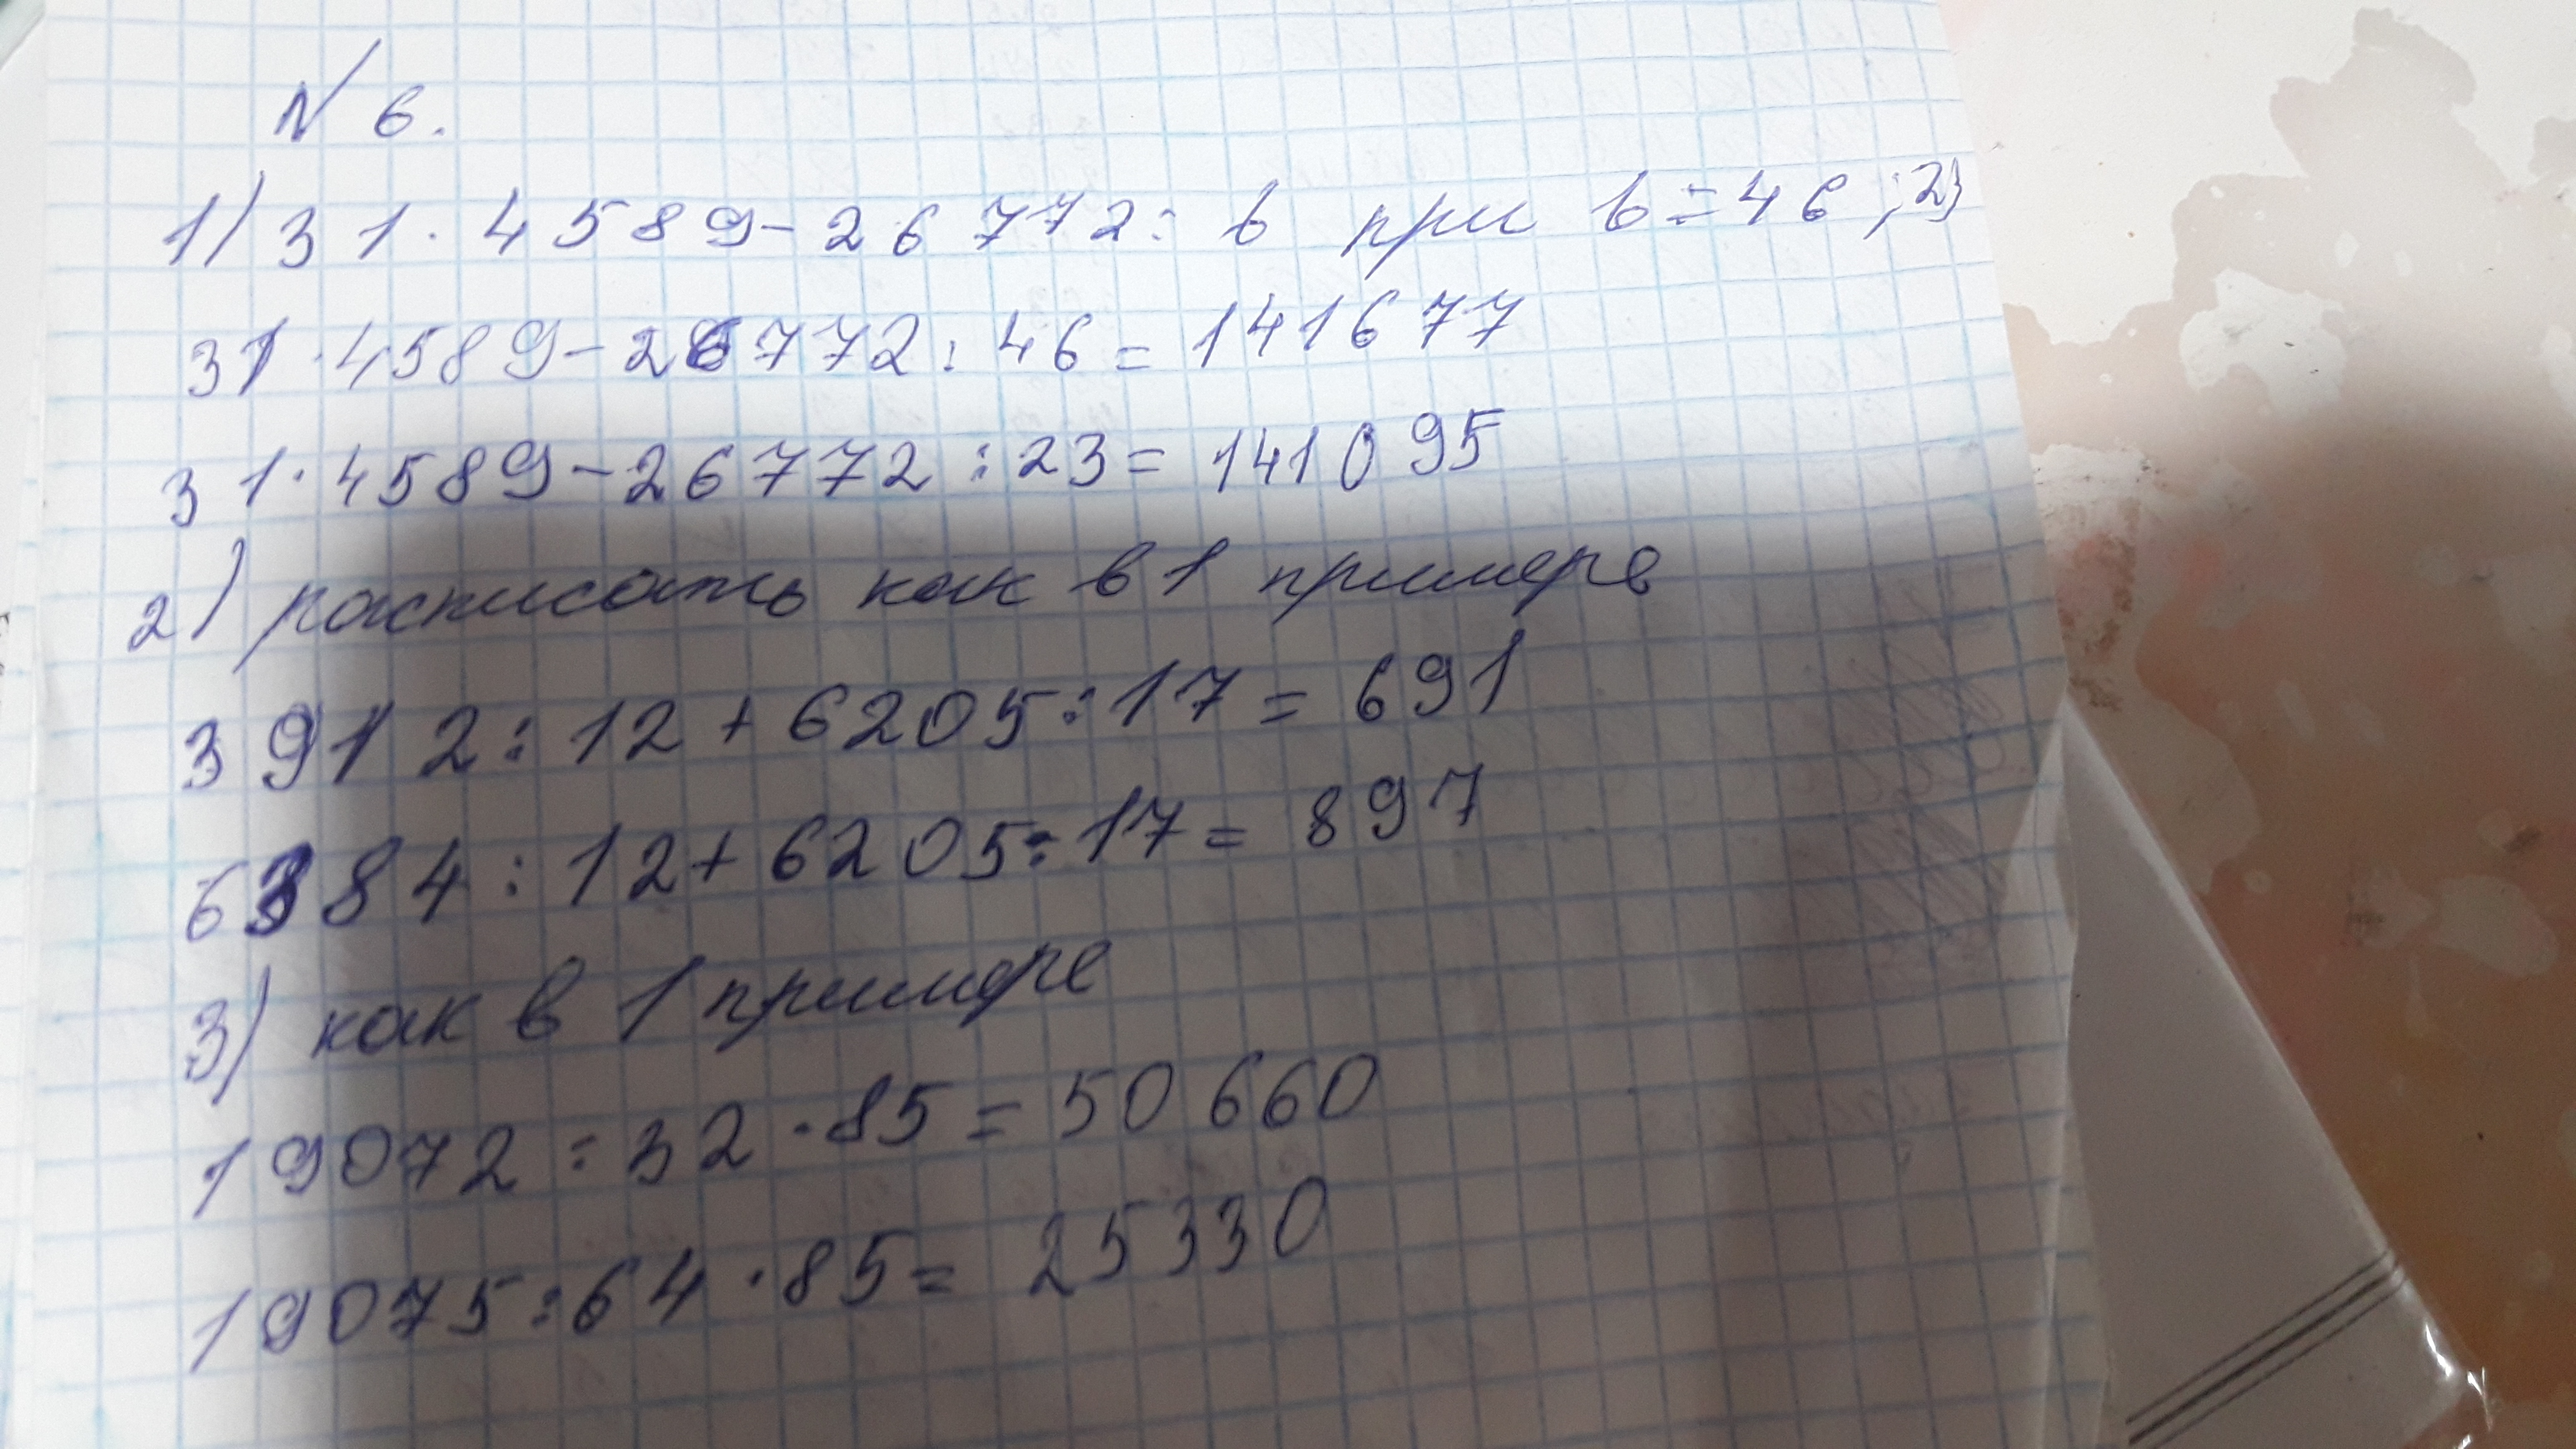 № 6.
1) 31 · 4589 - 26772 : в при в = 46 ; 23
31 · 4589 - 26772 : 46 = 141677
31 · 4589 - 26772 : 23 = 141095
2) расписать как в 1 примере
3912 : 12 + 6205 : 17 = 691
6384 : 12 + 6205 : 17 = 897
3) как в 1 примере
19072 : 32 · 85 = 50660
19075 : 64 · 85 = 25330